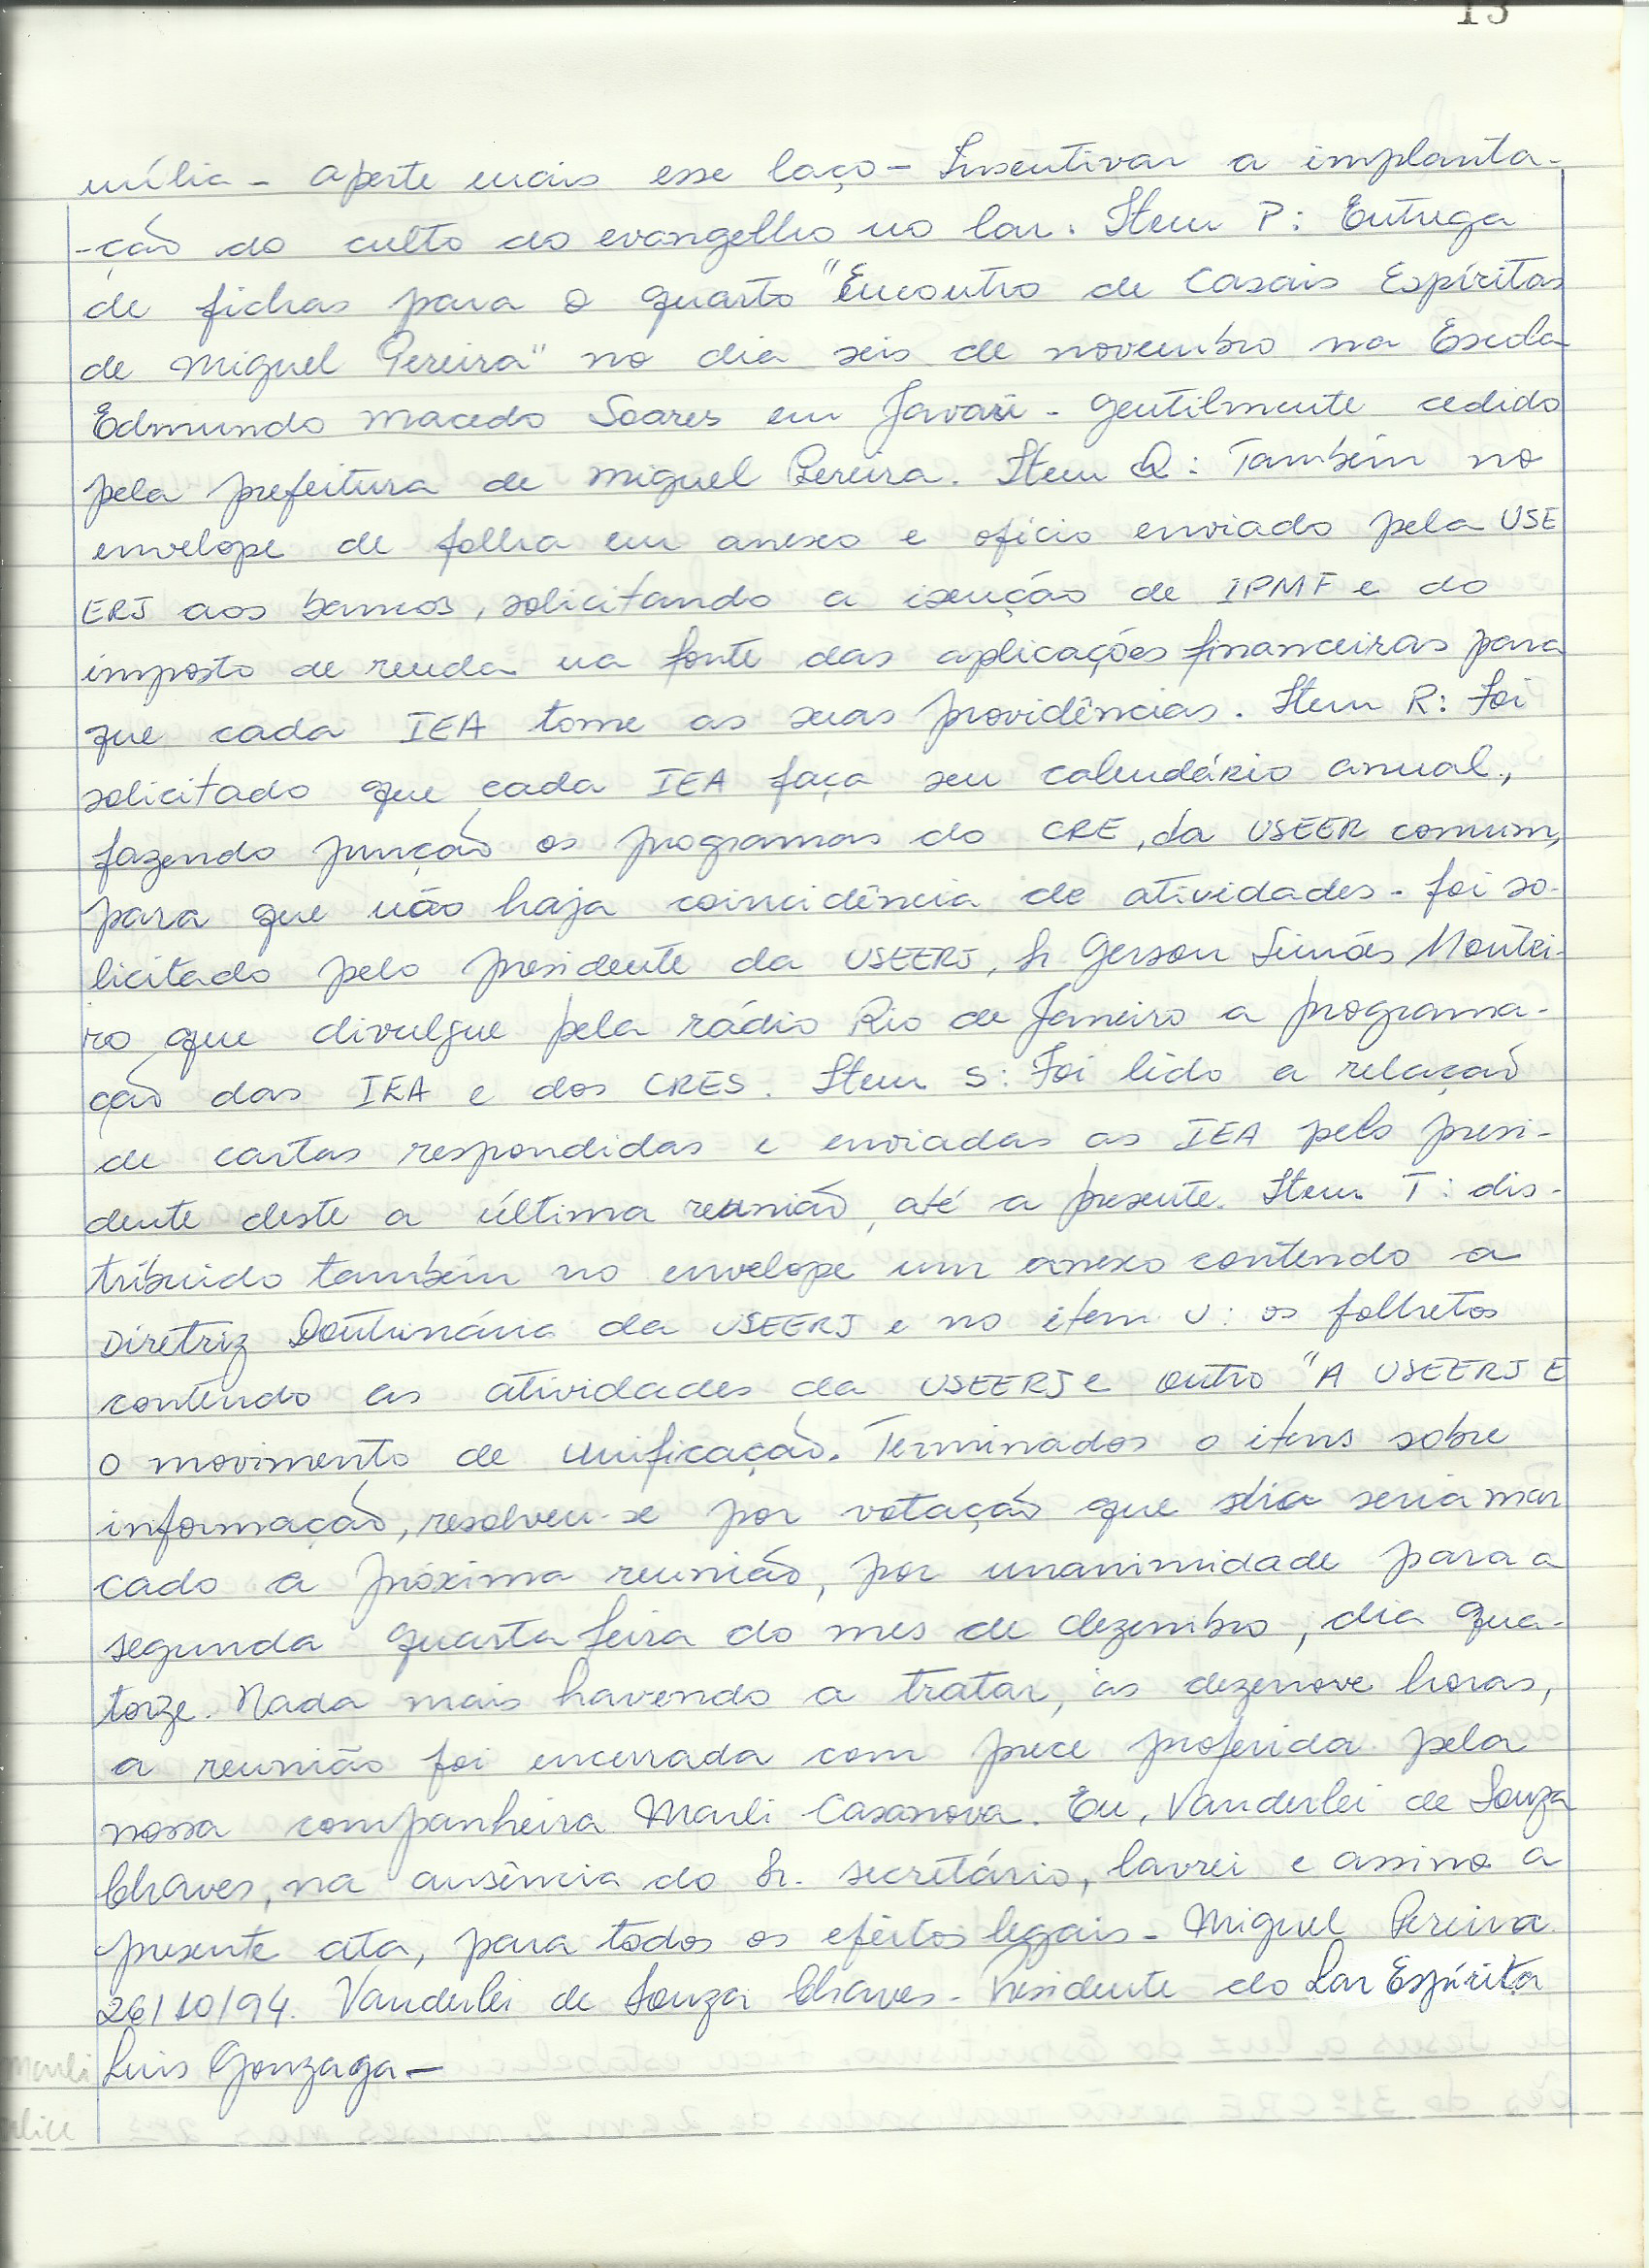 13
mília - aperte mais esse laço - Insentivar a implanta-
-ção do culto do evangelho no lar. Item P: Entrega
de fichas para o quarto "Encontro de Casais Espíritas
de Miguel Pereira" no dia seis de novembro na Escola
Edmundo Macedo Soares em Javari - gentilmente cedido
pela prefeitura de Miguel Pereira. Item Q: Também no
envelope de folha em anexo e ofício enviado pela USE
ERJ aos bancos, solicitando a isenção de IPMF e do
imposto de renda na fonte das aplicações financeiras para
que cada IEA tome as suas providências. Item R: Foi
solicitado que cada IEA faça seu calendário anual,
fazendo junção os programas do CRE, da USEER comum,
para que não haja coincidência de atividades - foi so-
licitado pelo presidente da USEERJ, Sr Gerson Simões Montei-
ro que divulgue pela rádio Rio de Janeiro a programa-
ção das IEA e dos CRES. Item S: Foi lido a relação
de cartas respondidas e enviadas as IEA pelo presi-
dente deste a última reunião, até a presente. Item T: dis-
tribuido também no envelope um anexo contendo a
Diretriz Doutrinária da USEERJ e no item U: os folhetos
contendo as atividades da USEERJ e outro "A USEERJ E
o movimento de unificação. Terminados o itens sobre
informação, resolveu-se por votação que dia seria mar
cado a próxima reunião, por unanimidade para a
segunda quarta feira do mes de dezembro, dia qua-
torze. Nada mais havendo a tratar, às dezenove horas,
a reunião foi encerrada com prece proferida pela
nossa companheira Marli Casanova. Eu, Vanderlei de Souza
Chaves, na ausência do Sr. secretário, lavrei e assino a
presente ata, para todos os efeitos legais - Miguel Pereira
26/10/94. Vanderlei de Souza Chaves - Presidente do Lar Espírita
Marli Luis Gonzaga -